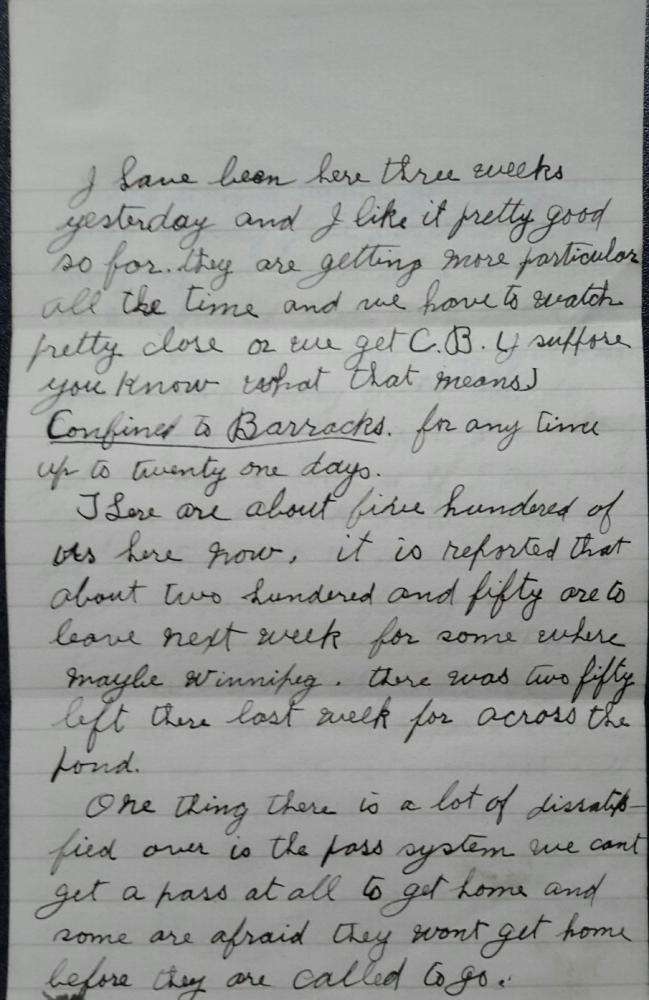 I have been here three weeks
yesterday and I like it pretty good
so far. they are getting more particular
all the time and we have to watch
pretty close or we get C.B. (I suppose
you know what that means)
Confined to Barracks. for any time
up to twenty one days.
There are about five hundered of
us here now, it is reported that
about two hundered and fifty are to
leave next week for some where
maybe Winnipeg. there was two fifty
left there last week for across the
pond.
One thing there is a lot of dissatis-
fied over is the pass system we cant
get a pass at all to get home and
some are afraid they wont get home
before they are called to go.